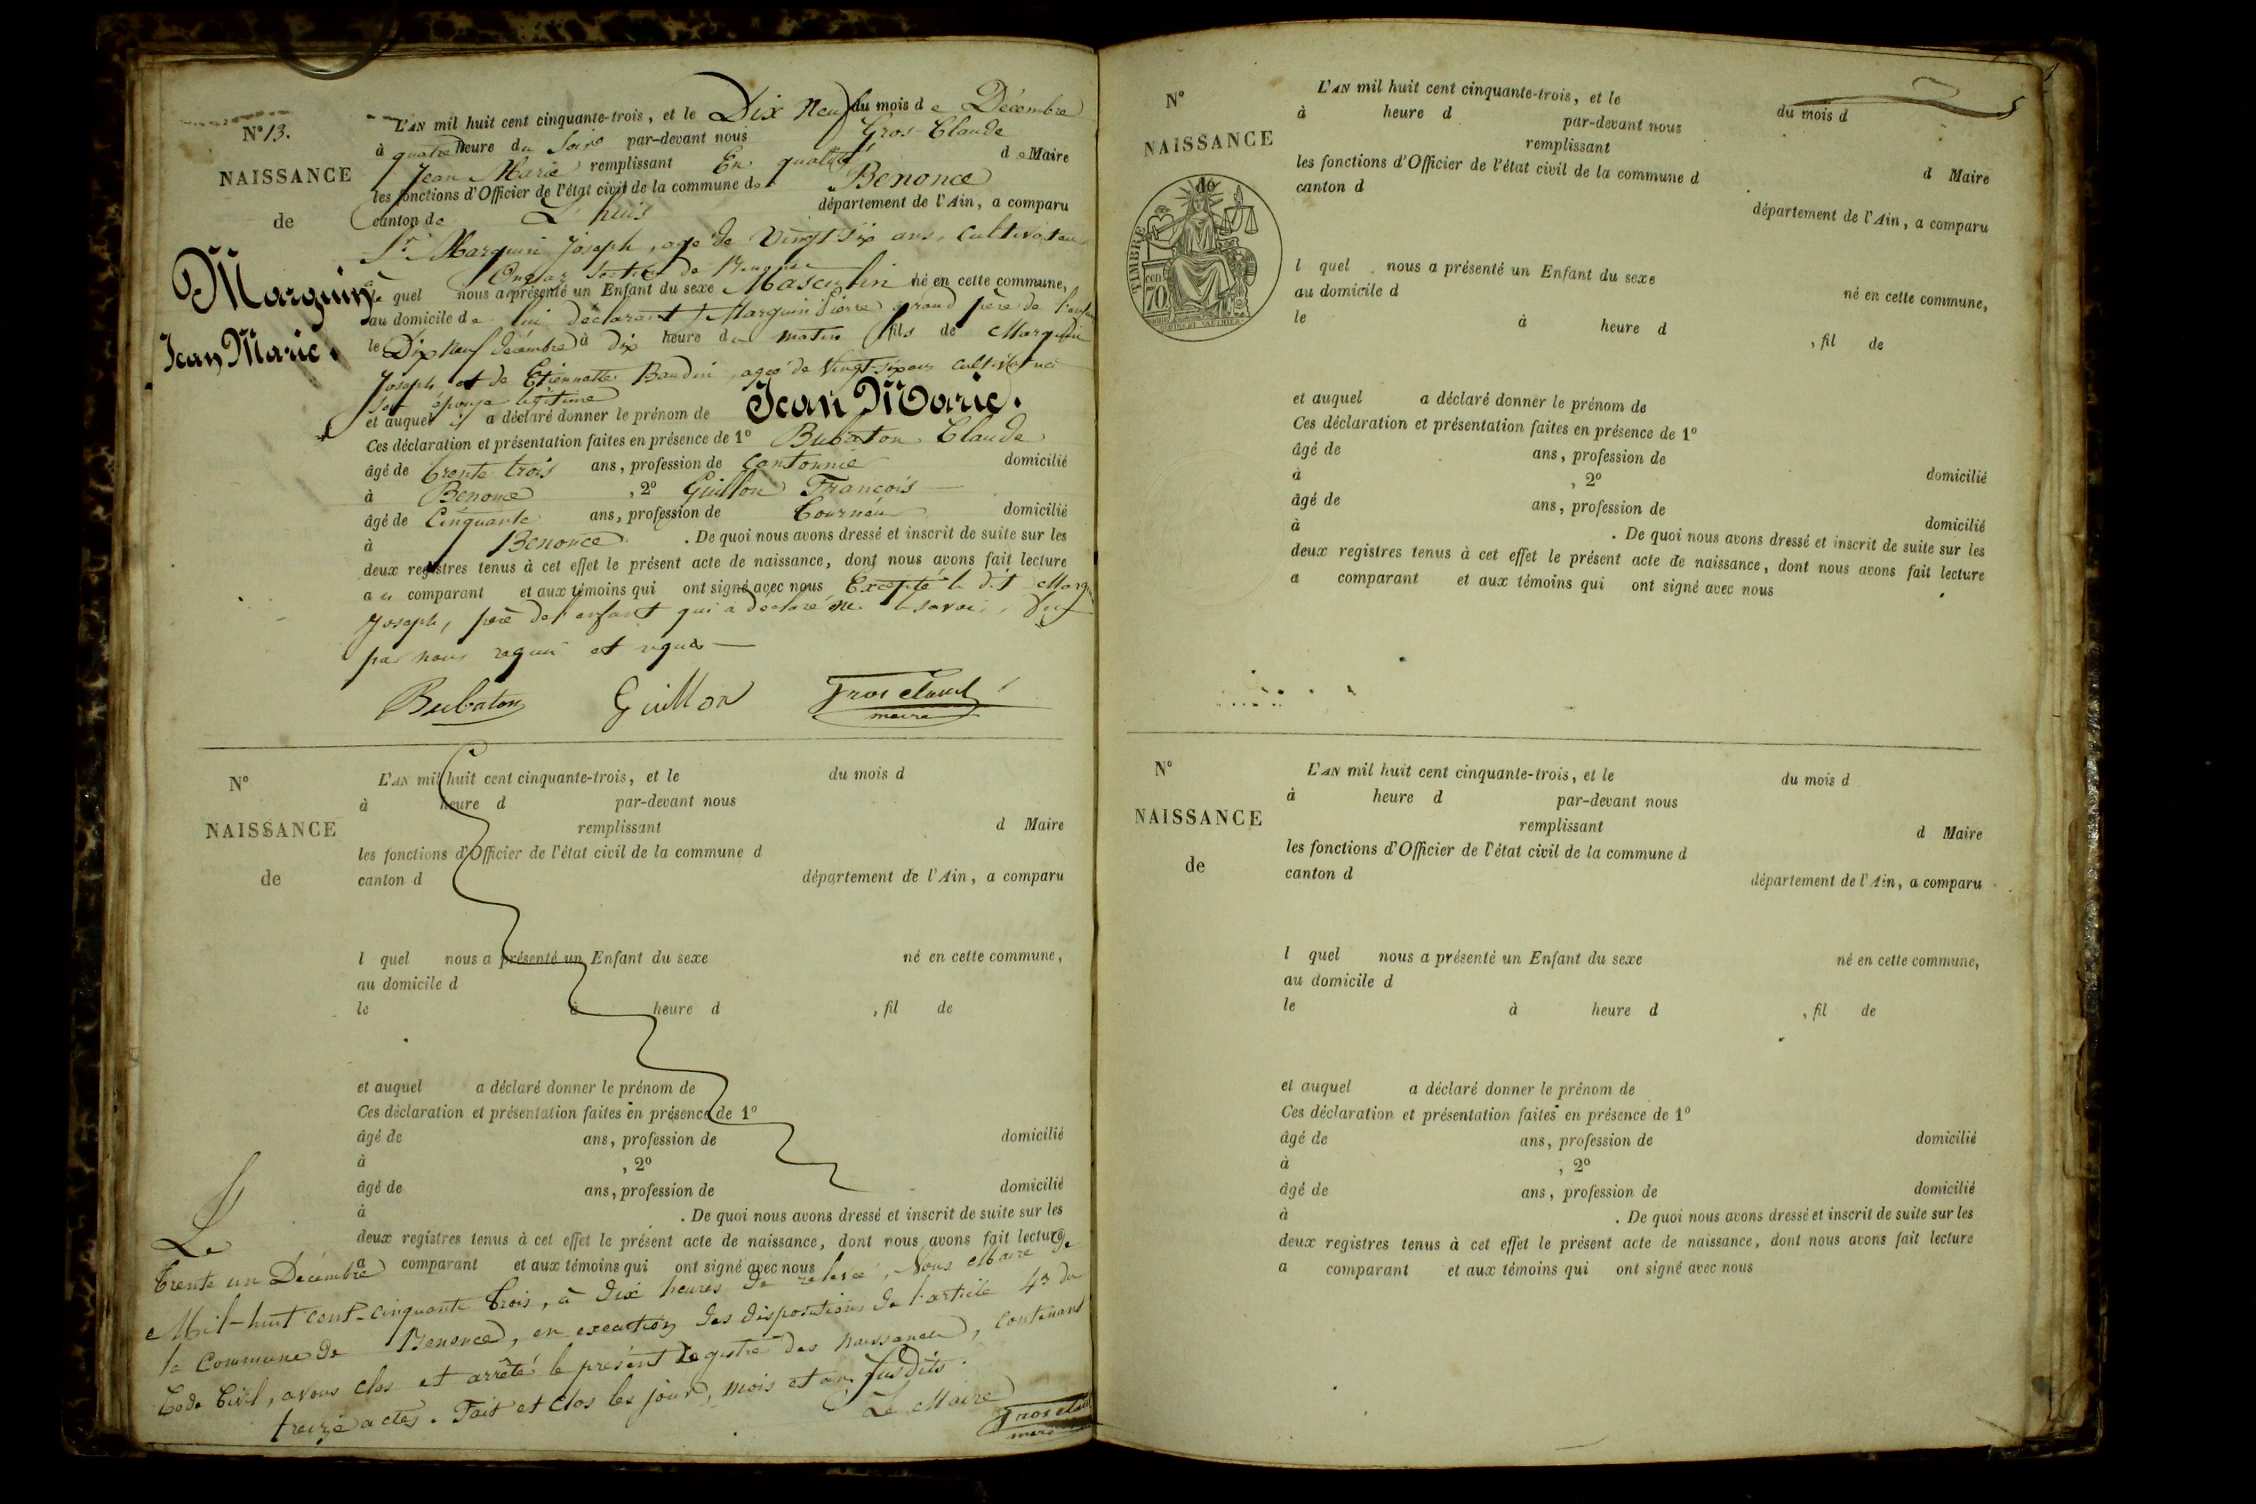 N° 13.
NAISSANCE
de
Marguin
Jean Marie.
L'AN mil huit cent cinquante-trois, et le Dix Neuf du mois de Décembre
à quatre heure du Soir par-devant nous Gros Claude
Jean Marie remplissant En qualité de Maire
les fonctions d'Officier de l'état civil de la commune de Benonce
canton de L'huis département de l'Ain, a comparu
Sr Marguin Joseph, agé de Vingt Six ans, Cultivateur
le quel nous a présenté un Enfant du sexe Masculin né en cette commune,
au domicile de lui déclarant Marguin Pierre grand père de l'enfant
le Dix Neuf décembre à dix heure du matin fils de Marguin
Joseph et de Etiennette Baudin, agée de Vingt-six ans cultivatrice
son épouse légitime
et auquel il a déclaré donner le prénom de Jean Marie.
Ces déclaration et présentation faites en présence de 1° Bubaton Claude
âgé de trente trois ans, profession de Cantonnié domicilié
à Benonce, 2° Guillon François
âgé de Cinquante ans, profession de Tourneur domicilié
à Benonce. De quoi nous avons dressé et inscrit de suite sur les
deux registres tenus à cet effet le présent acte de naissance, dont nous avons fait lecture
au comparant et aux témoins qui ont signé avec nous Excepté le dit Marg
Joseph, père de l'enfant qui a déclaré ne le savoir, De ce
par nous requis et
Bubaton Guillon Gros Claude
maire
N°
NAISSANCE
de
L'AN mil huit cent cinquante-trois, et le du mois d
à heure d par-devant nous
remplissant d Maire
les fonctions d'Officier de l'état civil de la commune d
canton d département de l'Ain, a comparu
l quel nous a présenté un Enfant du sexe né en cette commune,
au domicile d
le à heure d , fil de
et auquel a déclaré donner le prénom de
Ces déclaration et présentation faites en présence de 1°
âgé de ans, profession de domicilié
à , 2°
âgé de ans, profession de domicilié
à . De quoi nous avons dressé et inscrit de suite sur les
deux registres tenus à cet effet le présent acte de naissance, dont nous avons fait lecture
a comparant et aux témoins qui ont signé avec nous
Le
trente un Décembre
Mil-huit cent-cinquante Trois, à Dix heures de relevée, Nous Maire de
la Commune de Benonce, en execution des dispositions de l'article 43 du
Code Civil, avons clos et arrêté le présent Registre des naissances, contenant
treize actes. Fait et clos les jour, mois et an susdits.
Le Maire
Gros Claude
maire
N°
NAISSANCE
de
TIMBRE
CEN
70
L'AN mil huit cent cinquante-trois, et le du mois d
à heure d par-devant nous
remplissant d Maire
les fonctions d'Officier de l'état civil de la commune d
canton d département de l'Ain, a comparu
l quel nous a présenté un Enfant du sexe né en cette commune,
au domicile d
le à heure d , fil de
et auquel a déclaré donner le prénom de
Ces déclaration et présentation faites en présence de 1°
âgé de ans, profession de domicilié
à , 2°
âgé de ans, profession de domicilié
à . De quoi nous avons dressé et inscrit de suite sur les
deux registres tenus à cet effet le présent acte de naissance, dont nous avons fait lecture
a comparant et aux témoins qui ont signé avec nous
N°
NAISSANCE
de
L'AN mil huit cent cinquante-trois, et le du mois d
à heure d par-devant nous
remplissant d Maire
les fonctions d'Officier de l'état civil de la commune d
canton d département de l'Ain, a comparu
l quel nous a présenté un Enfant du sexe né en cette commune,
au domicile d
le à heure d , fil de
et auquel a déclaré donner le prénom de
Ces déclaration et présentation faites en présence de 1°
âgé de ans, profession de domicilié
à , 2°
âgé de ans, profession de domicilié
à . De quoi nous avons dressé et inscrit de suite sur les
deux registres tenus à cet effet le présent acte de naissance, dont nous avons fait lecture
a comparant et aux témoins qui ont signé avec nous